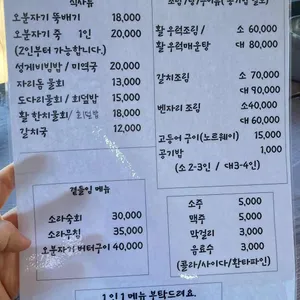 식사류
오분자기 뚝배기 18,000
오분자기 죽 1인 20,000
(2인부터 가능합니다.)
성게비빔밥 / 미역국 20,000
자리돔 물회 13,000
도다리물회 / 회덮밥 15,000
활 한치물회 / 회덮밥 18,000
갈치국 12,000
활 우럭조림 / 소 60,000
활 우럭매운탕 대 80,000
갈치조림 소 70,000
대 90,000
벤자리 조림 소40,000
대 60,000
고등어 구이(노르웨이) 15,000
공기밥 1,000
(소 2-3인 / 대3-4인)
곁들임 메뉴
소라숙회 30,000
소라무침 35,000
오분자기 버터구이 40,000
소주 5,000
맥주 5,000
막걸리 3,000
음료수 3,000
(콜라/사이다/환타파인)
1인 1메뉴 부탁드려요.